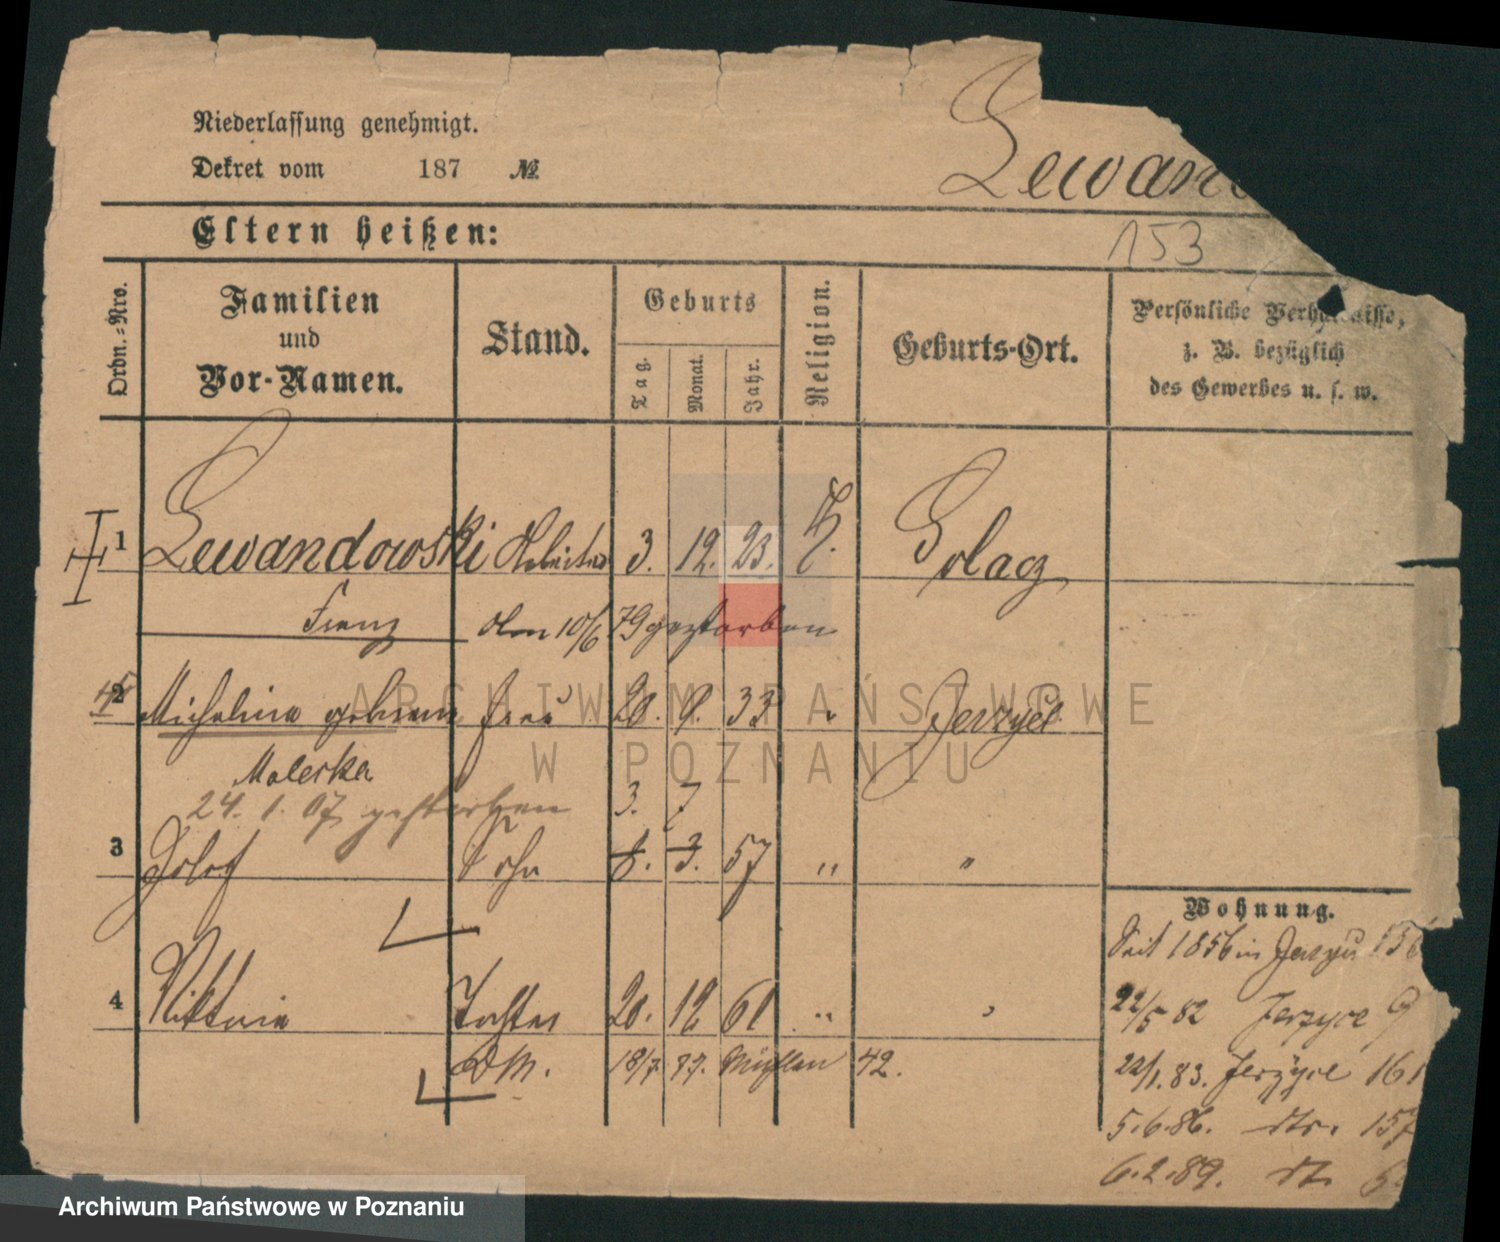 Niederlassung genehmigt.
Dekret vom 187 №
Lewand
Eltern heißen:
153
Ordn.-Nro.
Familien
und
Vor-Namen.
Stand.
Geburts
Tag.
Monat.
Jahr.
Religion.
Geburts-Ort.
Persönliche Verhältnisse,
z. B. bezüglich
des Gewerbes u. s. w.
1 Lewandowski Arbeiter 3. 12. 23. K.
Franz den 10/6 79 gestorben
2 Michalina geborene Frau 20. 9. 33 " Jerzyce
Maleska
24. 1. 07 gestorben 3. 7
3 Josef Sohn 8. 3. 57 " "
4 Viktoria Tochter 20. 12 61 " "
18/7. 87. Mühlen 42.
Wohnung.
Seit 1856 in Jerzyce 156
22/5 82 Jerzyce 9
22/1. 83. Jerzyce 161
5.6.86. dto. 157
6.2.89. dt. 6
ARCHIWUM PAŃSTWOWE
W POZNANIU
Archiwum Państwowe w Poznaniu